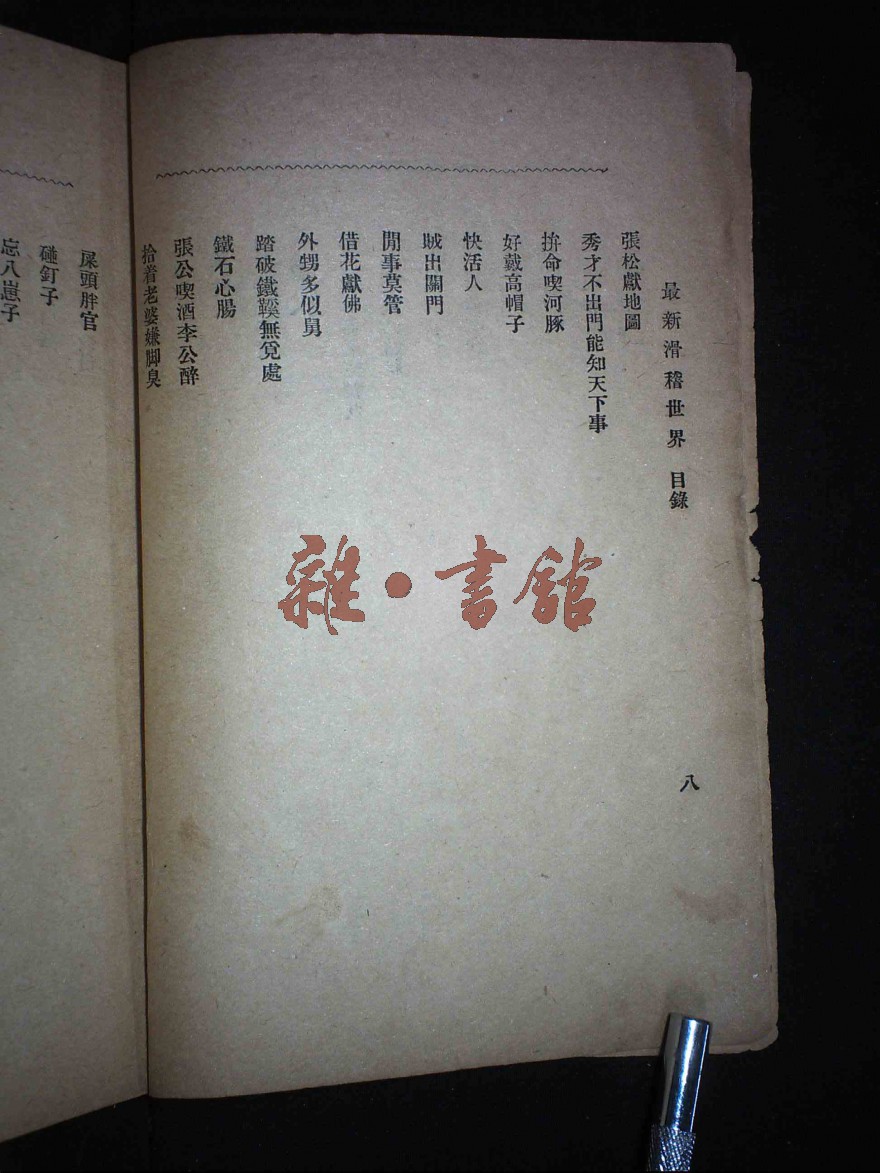 最新滑稽世界 目錄
八
張松獻地圖
秀才不出門能知天下事
拚命喫河豚
好戴高帽子
快活人
賊出關門
閒事莫管
借花獻佛
外甥多似舅
踏破鐵鞵無覓處
鐵石心腸
張公喫酒李公醉
拾着老婆嫌脚臭
屎頭胖官
碰釘子
忘八崽子
雜·書館